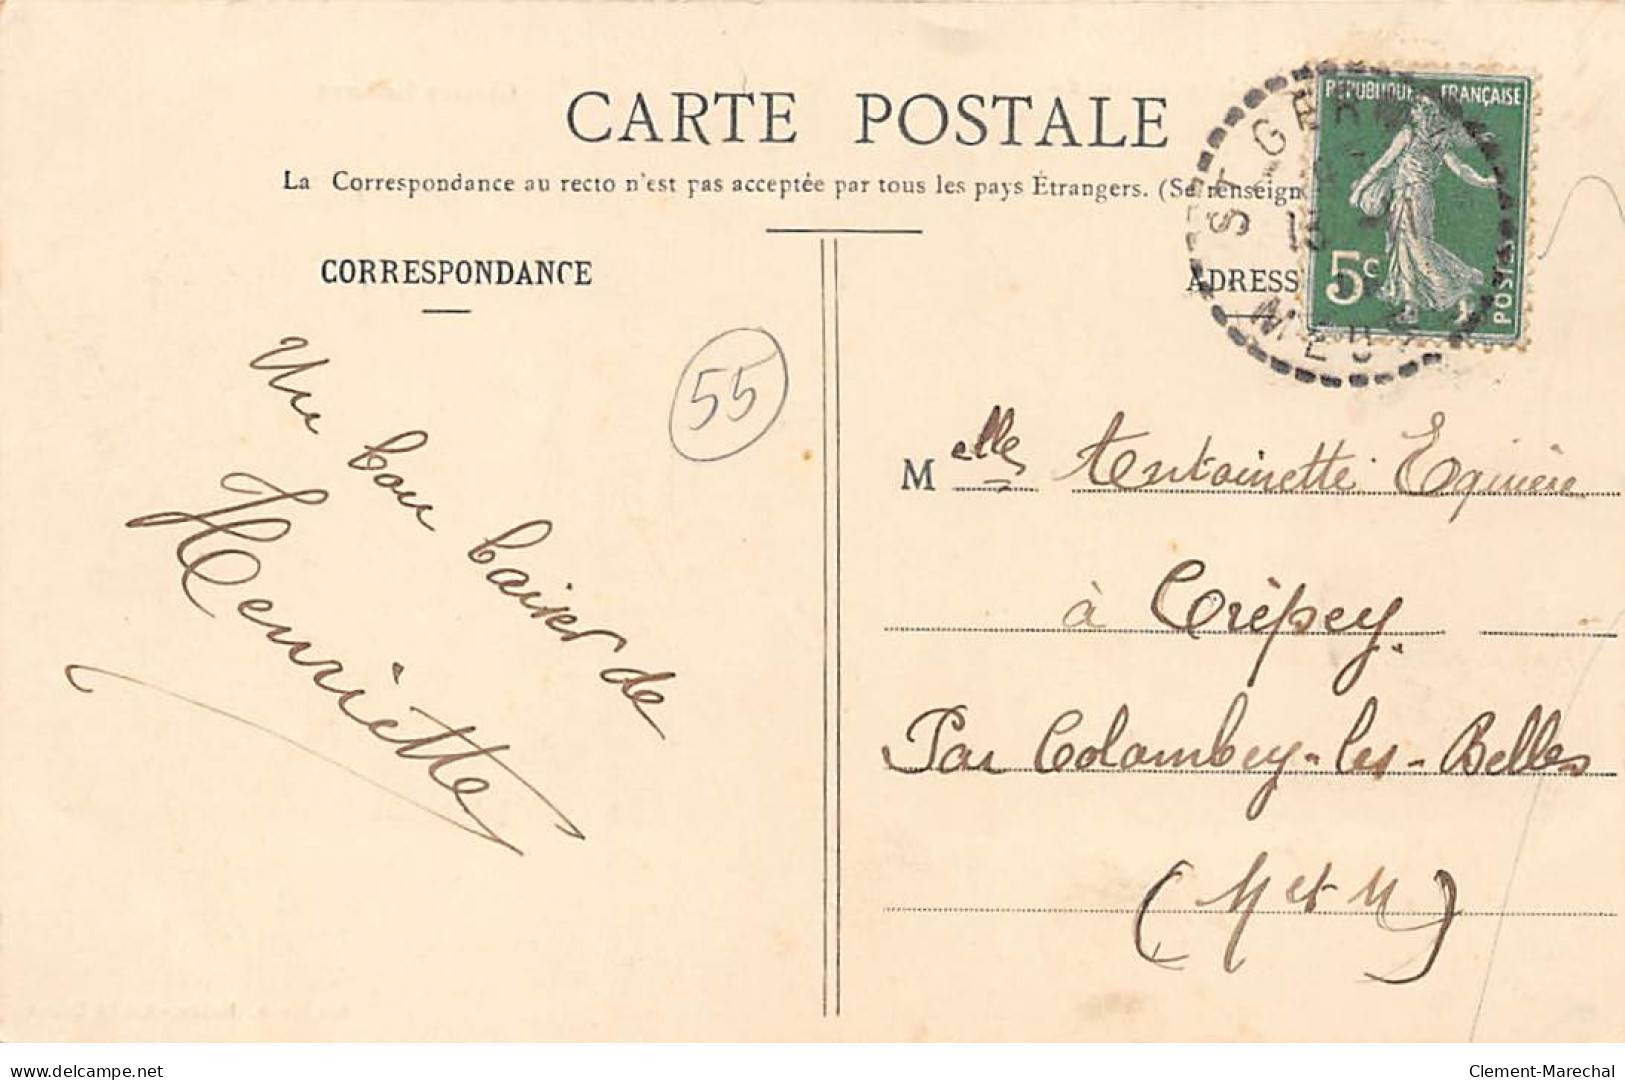 CARTE POSTALE
La Correspondance au recto n'est pas acceptée par tous les pays Étrangers. (Se renseign
CORRESPONDANCE
ADRESS
REPUBLIQUE FRANÇAISE
5c
POSTES
ST GERM
MEUSE
55
Un bon baiser de
Henriette
Melle Antoinette
à Crépey.
Par Colombey-les-Belles
(M et M)
delcampe.net
Clement-Marechal